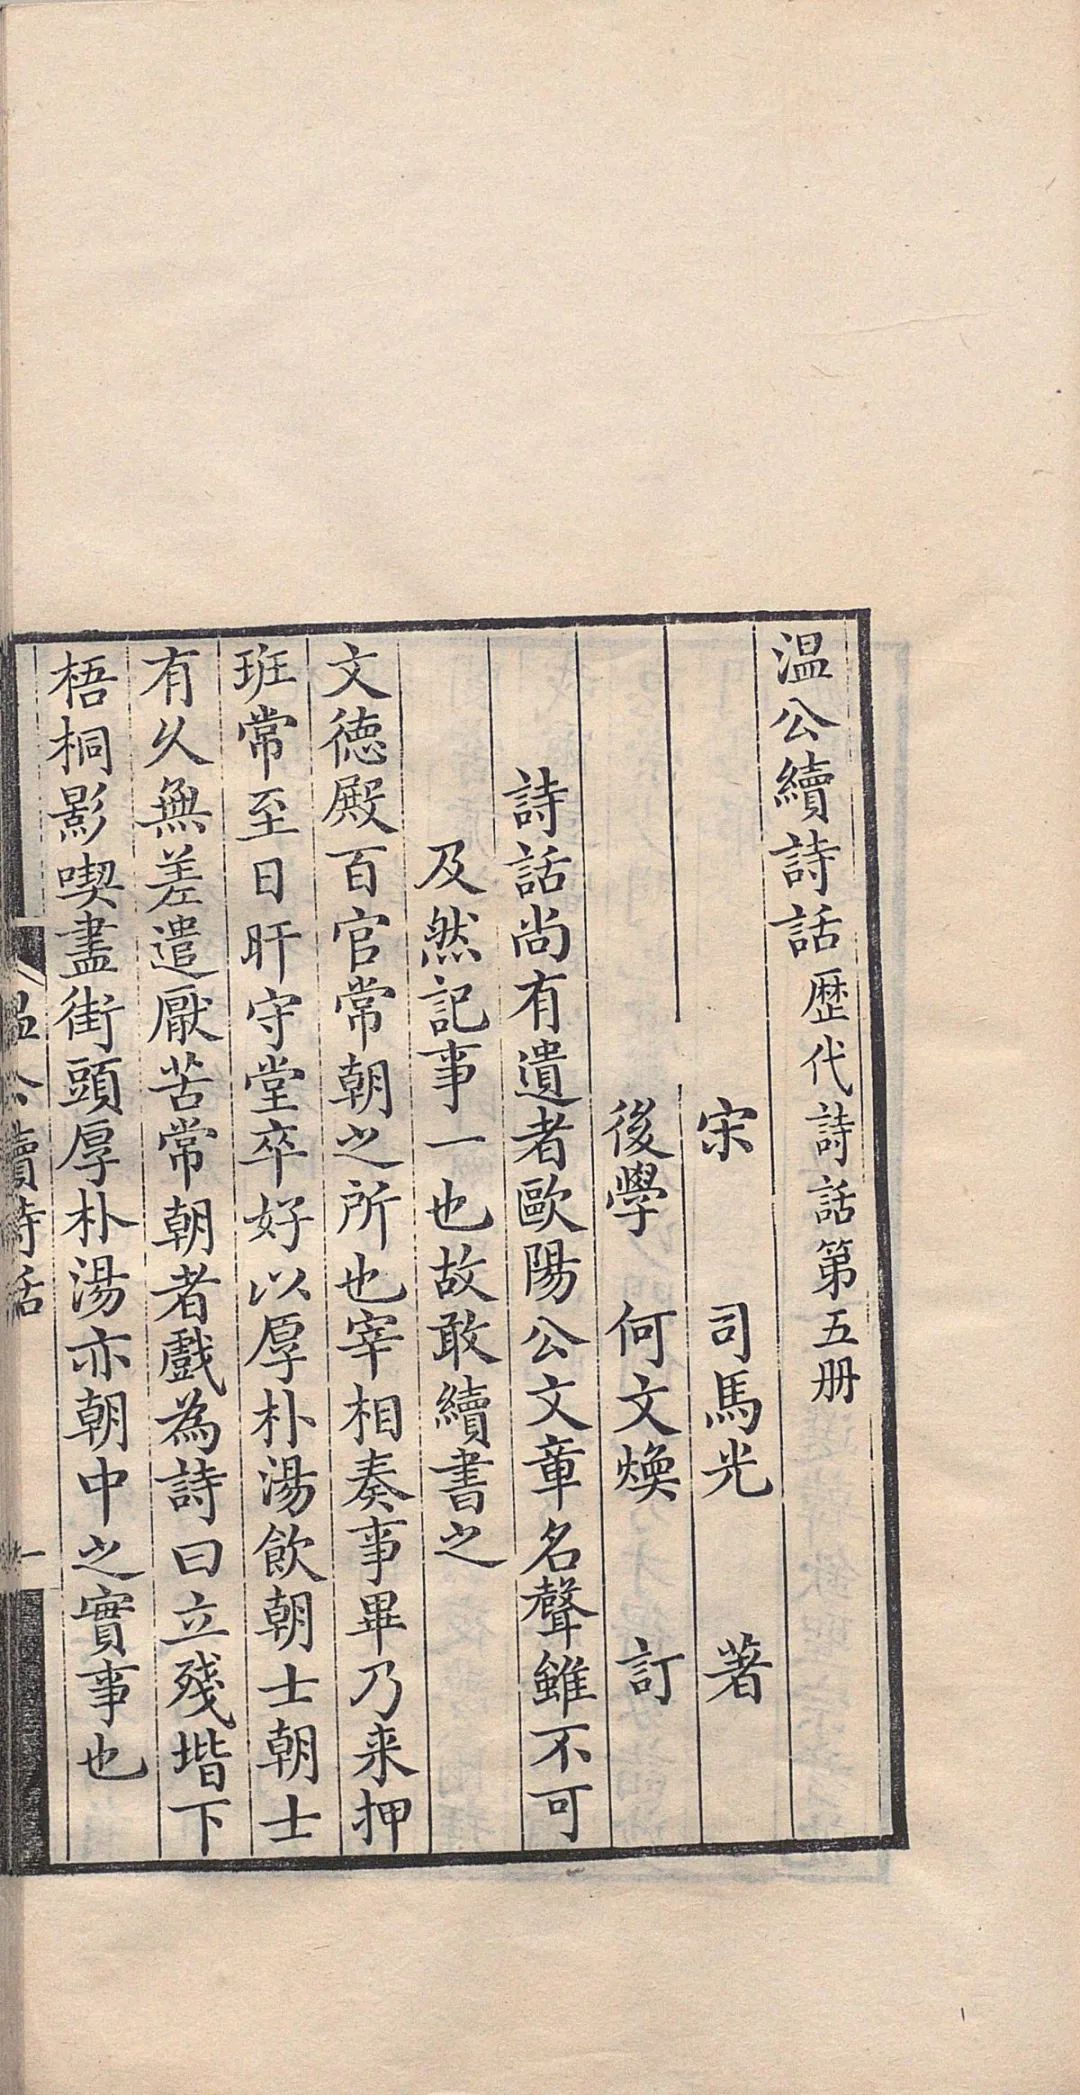 温公續詩話歷代詩話第五册
宋 司馬光 著
後學 何文煥 訂
詩話尚有遺者歐陽公文章名聲雖不可
及然記事一也故敢續書之
文德殿百官常朝之所也宰相奏事畢乃来押
班常至日旰守堂卒好以厚朴湯飲朝士朝士
有久無差遣厭苦常朝者戲為詩曰立殘堦下
梧桐影喫盡街頭厚朴湯亦朝中之實事也
温公續詩話
一